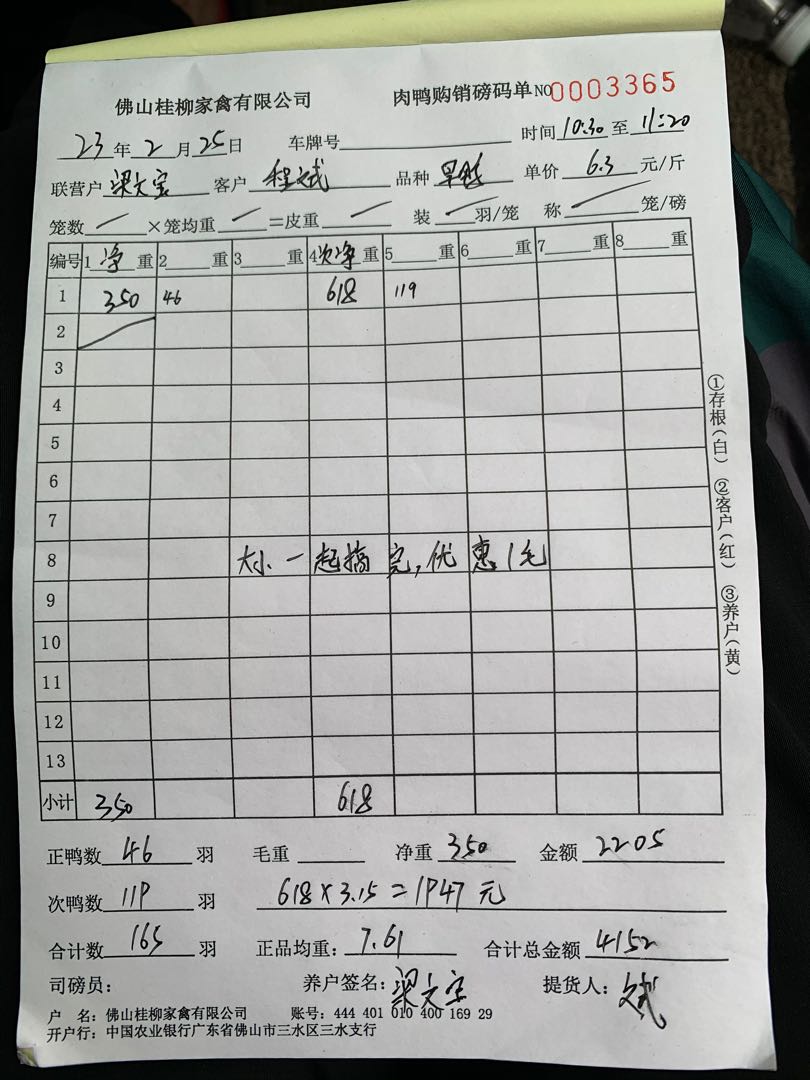 佛山桂柳家禽有限公司 肉鸭购销磅码单 NO 0003365
23年2月25日 车牌号 时间10:30至11:20
联营户 梁文宝 客户 程斌 品种 单价 6.3 元/斤
笼数 ×笼均重 =皮重 装 羽/笼 称 笼/磅
编号 1净重 2 重 3 重 4次净重 5 重 6 重 7 重 8 重
1 350 46 618 119
2
3
4
5
6
7
8 大小一起搞完,优惠1毛
9
10
11
12
13
小计 350 618
正鸭数 46 羽 毛重 净重 350 金额 2205
次鸭数 119 羽 618×3.15=1947元
合计数 165 羽 正品均重: 7.61 合计总金额 4152
司磅员: 养户签名: 梁文宝 提货人: 文斌
户 名: 佛山桂柳家禽有限公司 账号: 444 401 010 400 169 29
开户行: 中国农业银行广东省佛山市三水区三水支行
①存根(白) ②客户(红) ③养户(黄)